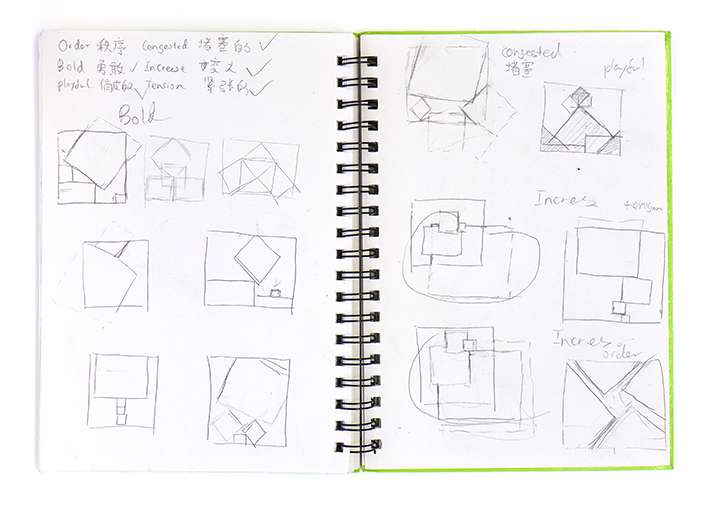 Order 秩序 Congested 堵塞的 ✓
Bold 勇敢 ✓ Increase 变大 ✓
playful 俏皮的 Tension 紧张的 ✓
Bold
Congested
堵塞
playful
Incres
tension
Incres
order